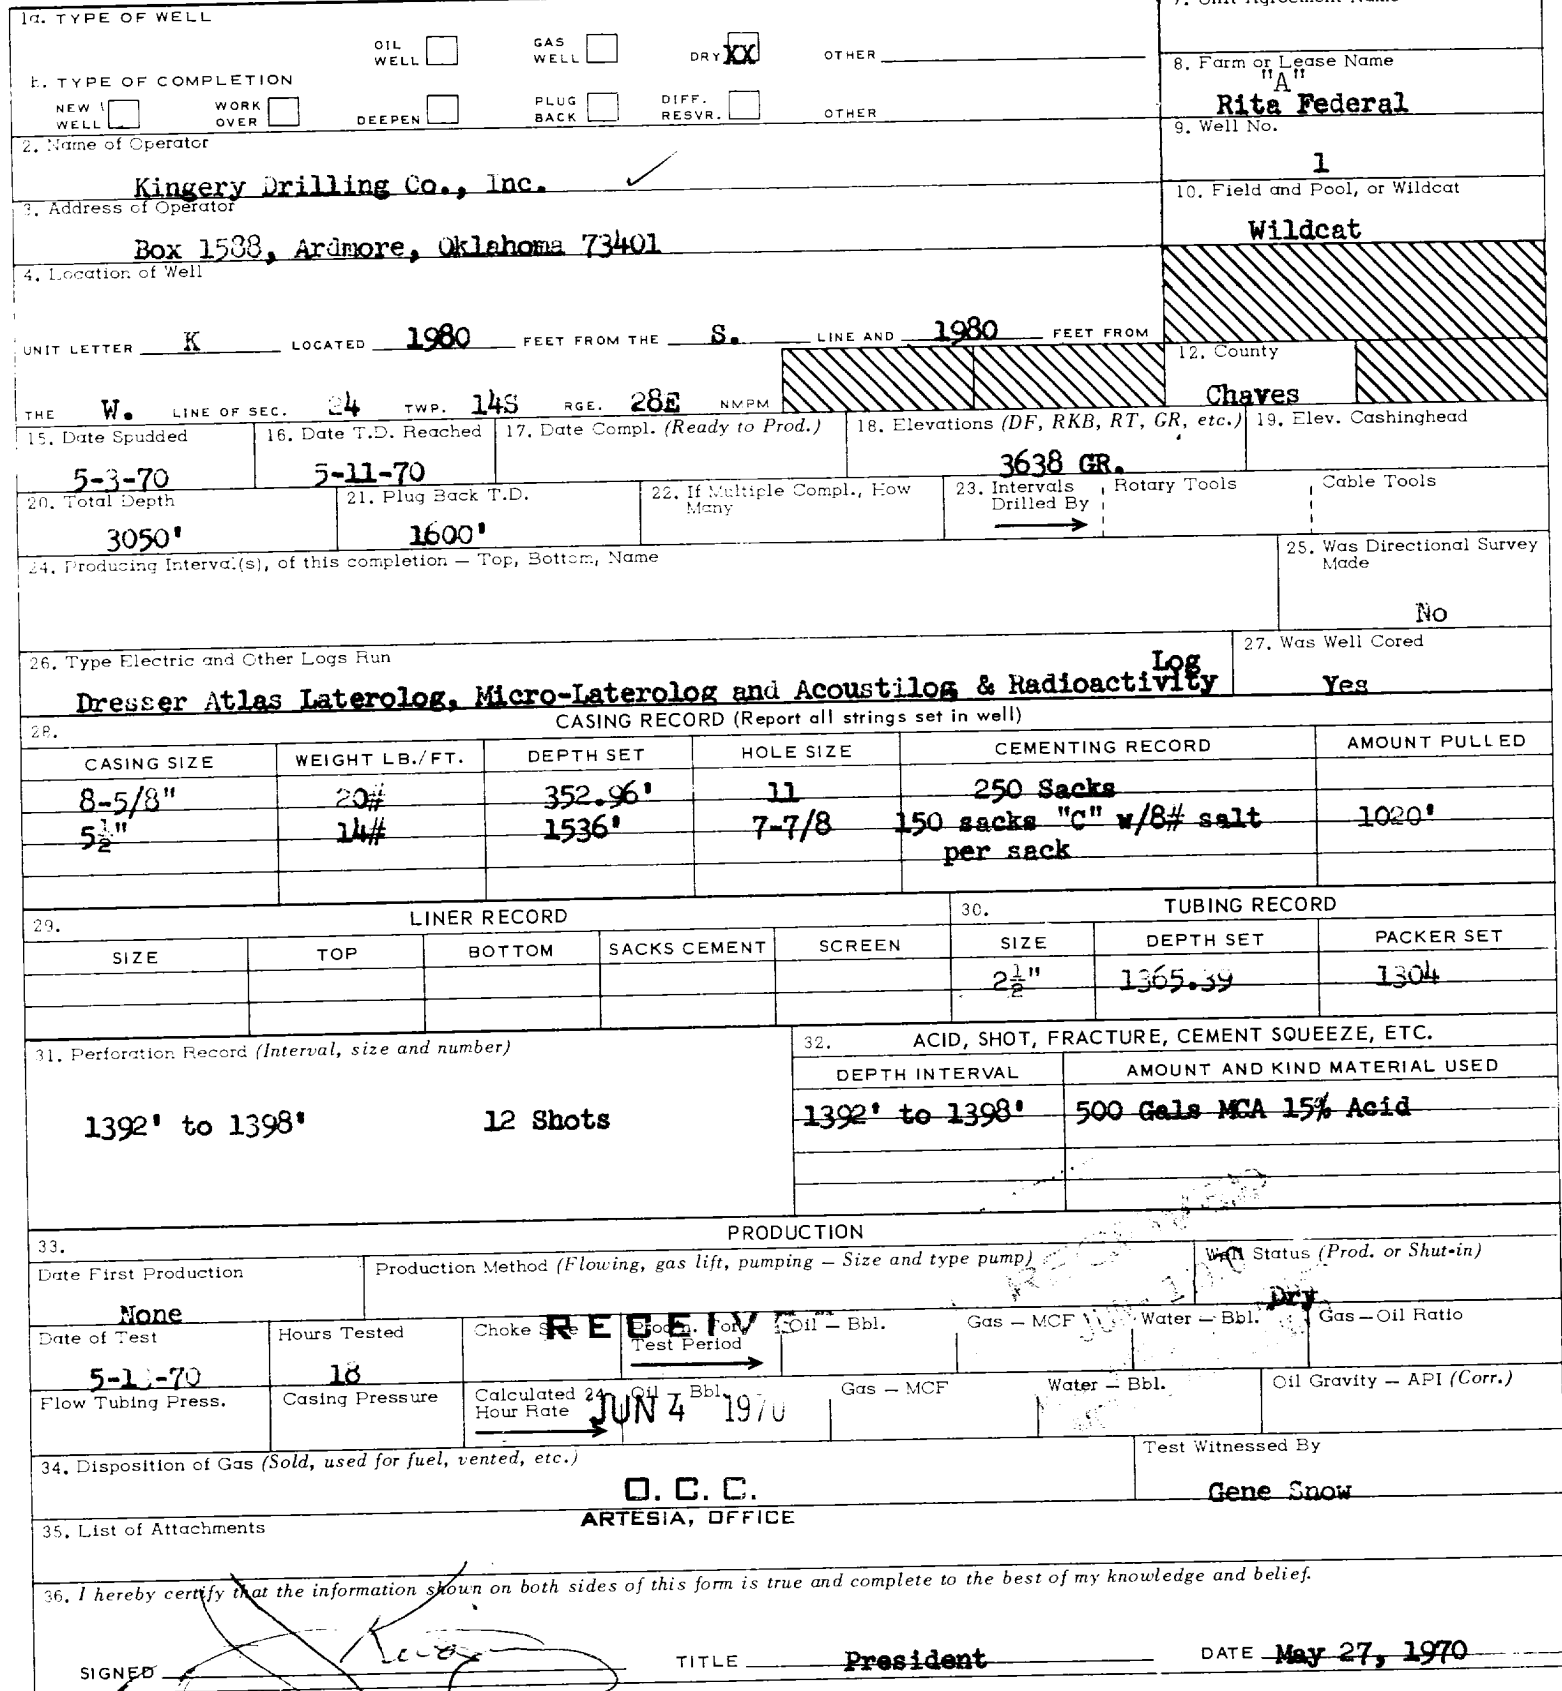 1a. TYPE OF WELL
OIL WELL GAS WELL DRY XX OTHER
b. TYPE OF COMPLETION
NEW WELL WORK OVER DEEPEN PLUG BACK DIFF. RESVR. OTHER
7. Unit Agreement Name
8. Farm or Lease Name
"A"
Rita Federal
2. Name of Operator
Kingery Drilling Co., Inc.
9. Well No.
1
3. Address of Operator
Box 1588, Ardmore, Oklahoma 73401
10. Field and Pool, or Wildcat
Wildcat
4. Location of Well
UNIT LETTER K LOCATED 1980 FEET FROM THE S. LINE AND 1980 FEET FROM
12. County
Chaves
THE W. LINE OF SEC. 24 TWP. 14S RGE. 28E NMPM
15. Date Spudded 16. Date T.D. Reached 17. Date Compl. (Ready to Prod.) 18. Elevations (DF, RKB, RT, GR, etc.) 19. Elev. Cashinghead
5-3-70 5-11-70 3638 GR.
20. Total Depth 21. Plug Back T.D. 22. If Multiple Compl., How Many 23. Intervals Drilled By Rotary Tools Cable Tools
3050' 1600'
24. Producing Interval(s), of this completion — Top, Bottom, Name
25. Was Directional Survey Made
No
26. Type Electric and Other Logs Run
Log
Dresser Atlas Laterolog, Micro-Laterolog and Acoustilog & Radioactivity
27. Was Well Cored
Yes
28. CASING RECORD (Report all strings set in well)
CASING SIZE WEIGHT LB./FT. DEPTH SET HOLE SIZE CEMENTING RECORD AMOUNT PULLED
8-5/8" 20# 352.96' 11 250 Sacks
5½" 14# 1536' 7-7/8 150 sacks "C" w/8# salt 1020'
per sack
29. LINER RECORD 30. TUBING RECORD
SIZE TOP BOTTOM SACKS CEMENT SCREEN SIZE DEPTH SET PACKER SET
2½" 1365.39 1304
31. Perforation Record (Interval, size and number)
1392' to 1398' 12 Shots
32. ACID, SHOT, FRACTURE, CEMENT SQUEEZE, ETC.
DEPTH INTERVAL AMOUNT AND KIND MATERIAL USED
1392' to 1398' 500 Gals MCA 15% Acid
33. PRODUCTION
Date First Production Production Method (Flowing, gas lift, pumping — Size and type pump) Well Status (Prod. or Shut-in)
None Dry
RECEIVE
Date of Test Hours Tested Choke Size Prod'n. For Test Period Oil — Bbl. Gas — MCF Water — Bbl. Gas—Oil Ratio
18
Flow Tubing Press. Casing Pressure Calculated 24-Hour Rate Oil — Bbl. Gas — MCF Water — Bbl. Oil Gravity — API (Corr.)
JUN 4 1970
34. Disposition of Gas (Sold, used for fuel, vented, etc.)
Test Witnessed By
Gene Snow
O. C. C.
ARTESIA, OFFICE
35. List of Attachments
36. I hereby certify that the information shown on both sides of this form is true and complete to the best of my knowledge and belief.
SIGNED TITLE President DATE May 27, 1970